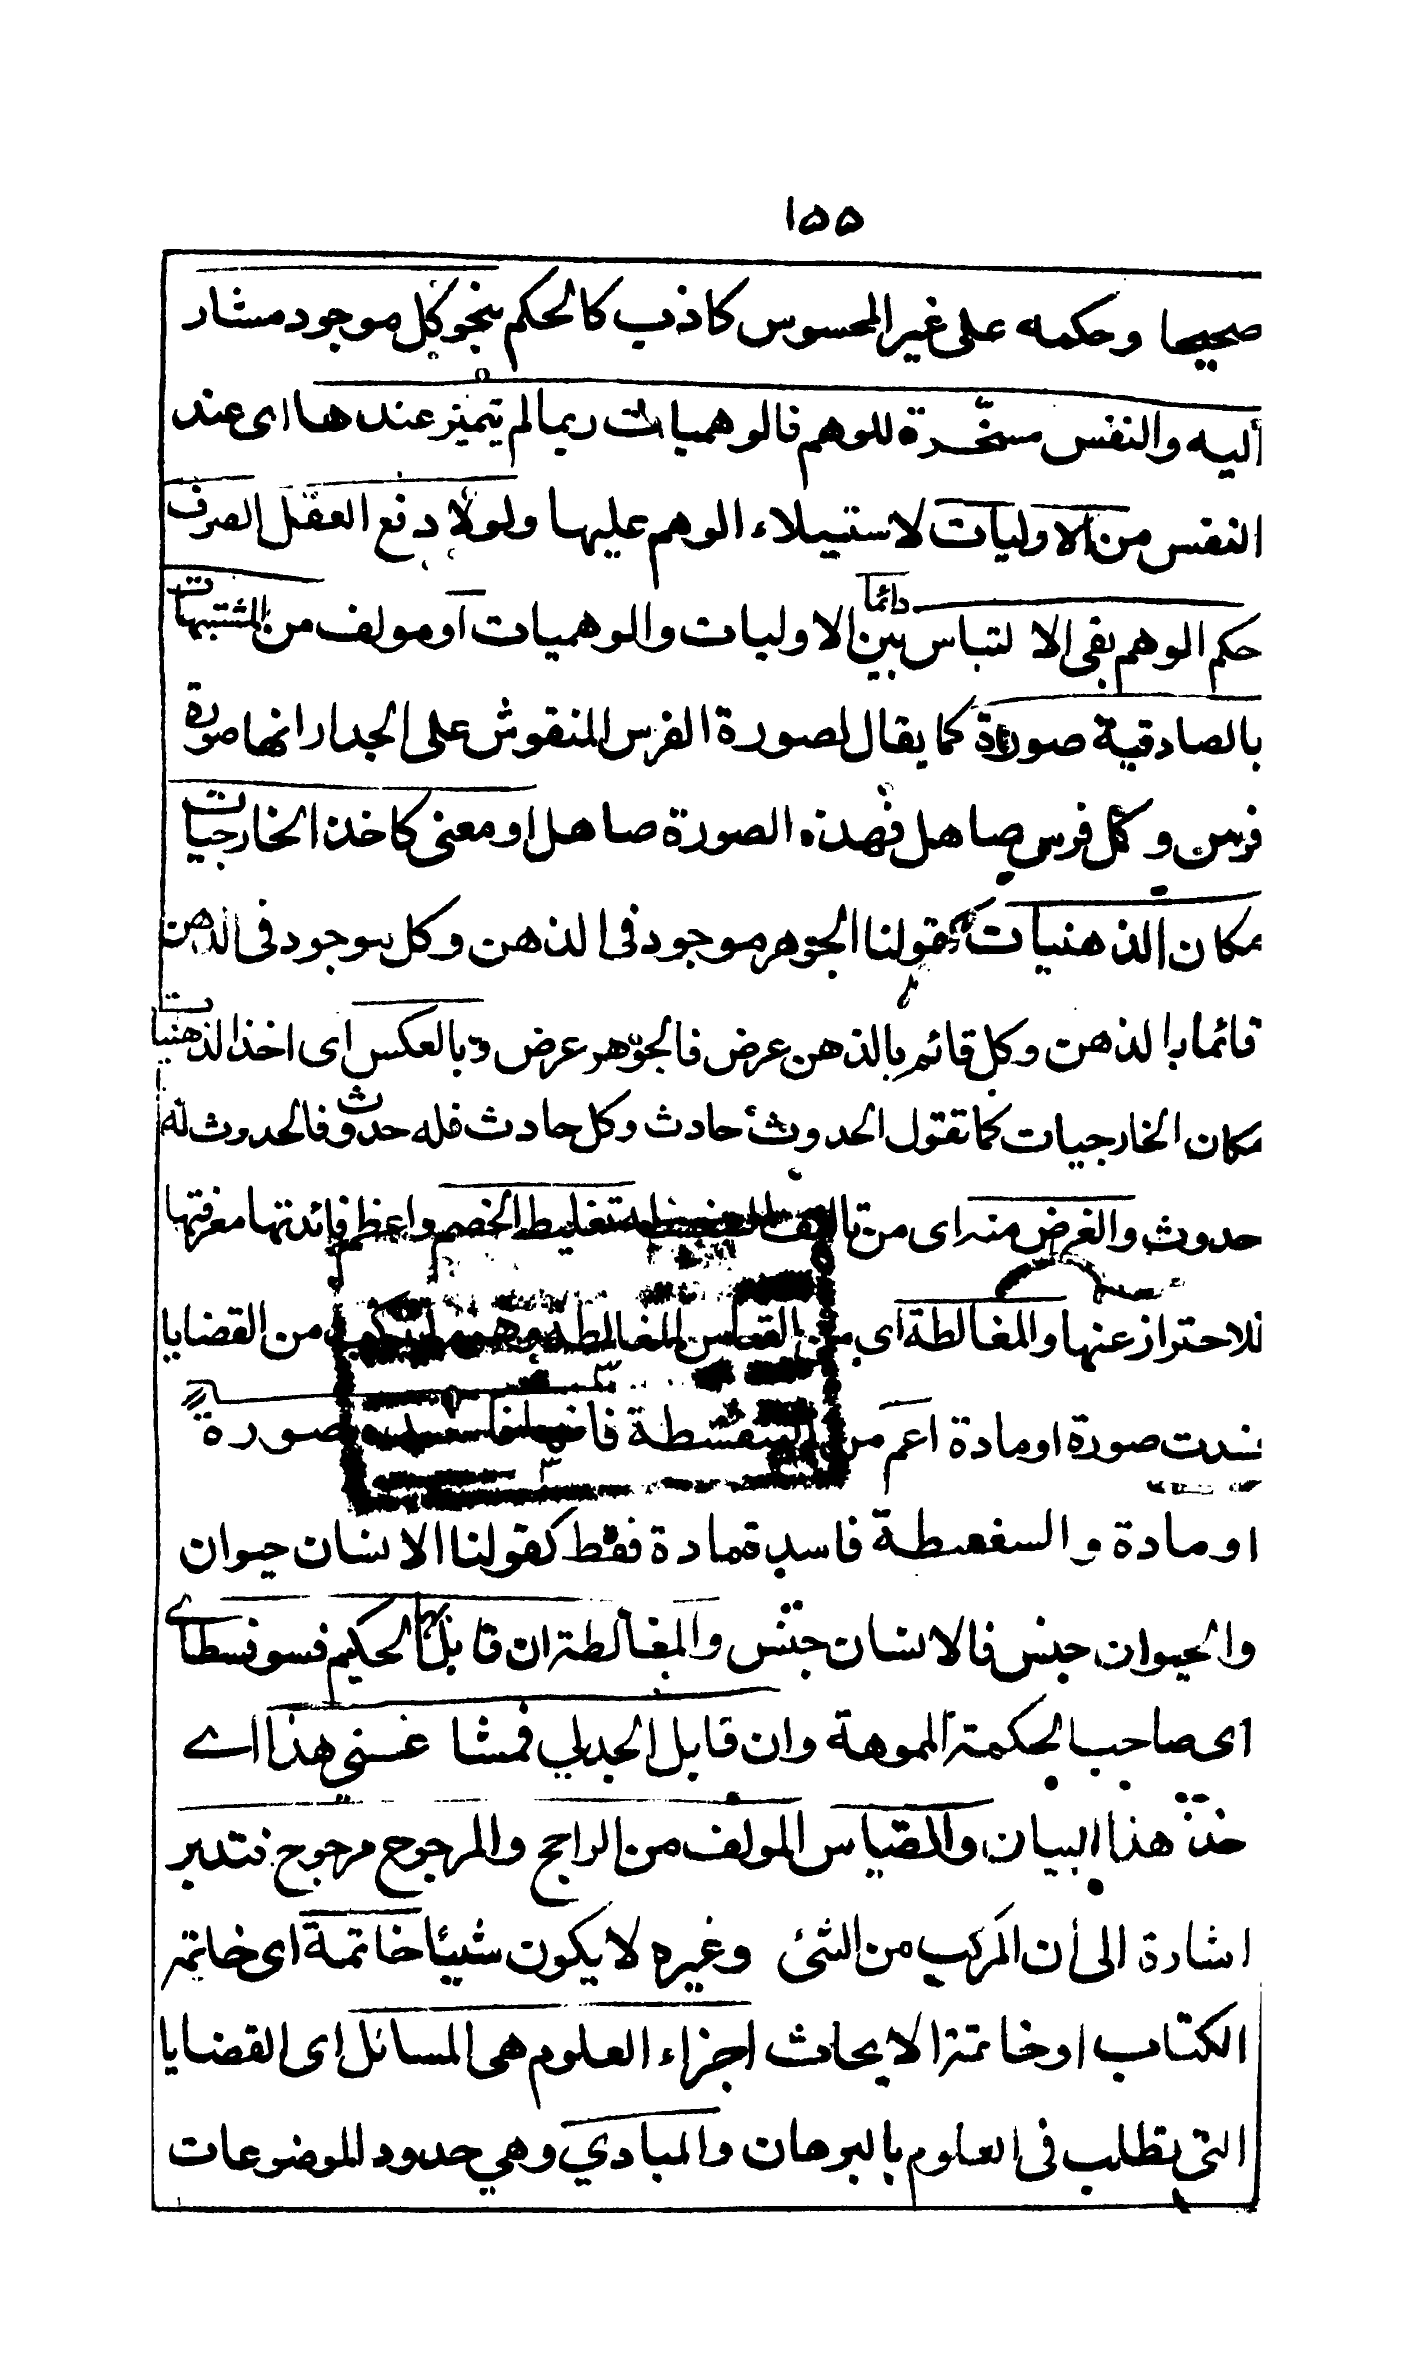 ١٥٥
صحيحا وحكمه على غير المحسوس كاذب كالحكم بنحو كل موجود مشار
اليه والنفس مسخّرة للوهم فالوهميات ربما لم يتميز عندها اى عند
النفس من الاوليات لاستيلاء الوهم عليها ولولا دفع العقل الصرف
حكم الوهم بقى الالتباس بين الاوليات والوهميات دائما او مولف من المشتبهات
بالصادقية صورة كما يقال لصورة الفرس المنقوش على الجدار انها صورة
فرس وكل فرس صاهل فهذه الصورة صاهل او معنى كاخذ الخارجيات
مكان الذهنيات كقولنا الجوهر موجود فى الذهن وكل موجود فى الذهن
قائما بالذهن وكل قائم بالذهن عرض فالجوهر عرض وبالعكس اى اخذ الذهنيات
مكان الخارجيات كما تقول الحدوث حادث وكل حادث فله حدوث فالحدوث له
حدوث والغرض منه اى من تاليف تغليط الخصم واعظم فائدتها معرفتها
للاحتراز عنها والمغالطة اى من القياس المغالطة من القضايا
صورة او مادة اعم من السفسطة فانها صورة
او مادة والسفسطة فاسدة مادة فقط كقولنا الانسان حيوان
والحيوان جنس فالانسان جنس والمغالطة ان قابل بها الحكيم فسوفسطاى
اى صاحب الحكمة المموهة وان قابل الجدلى فمشاغبى هذا اے
خذ هذا البيان والقياس المولف من الراجح والمرجوح مرجوح فتدبر
اشارة الى أن المركب من الشئ وغيره لا يكون شيئا خاتمة اى خاتمة
الكتاب او خاتمة الابحاث اجزاء العلوم هى المسائل اى القضايا
التى تطلب فى العلوم بالبرهان والمبادي وهي حدود الموضوعات